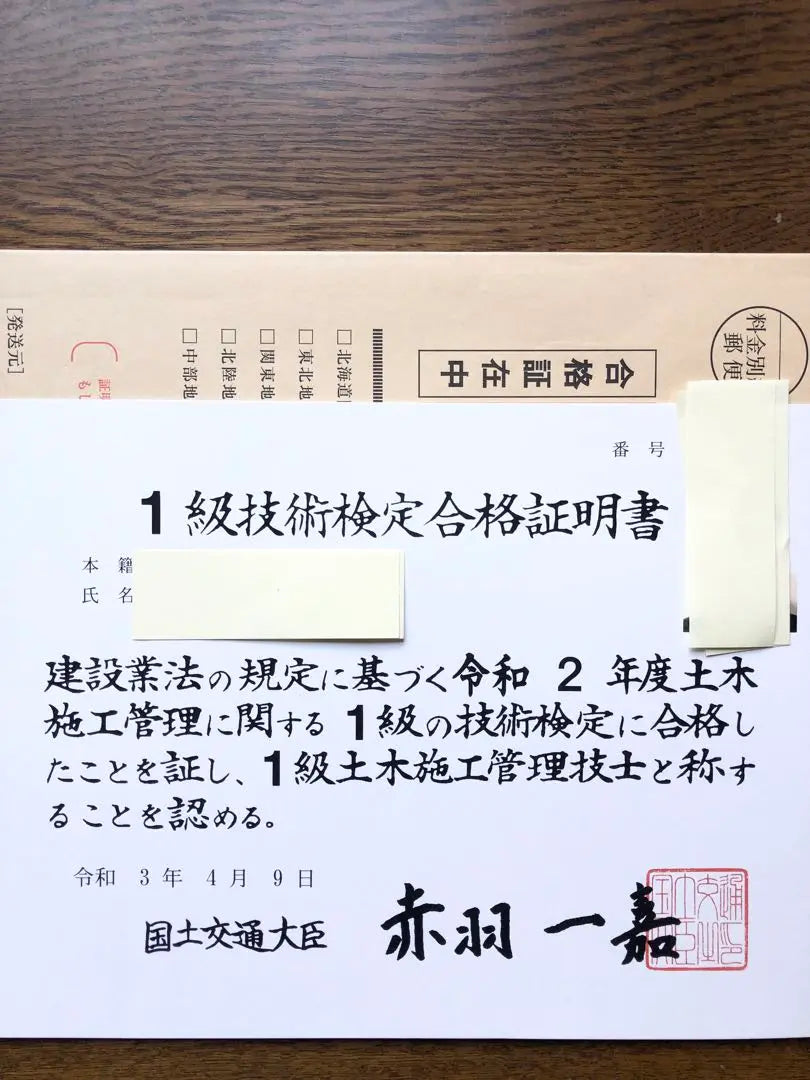 [発送元]
証明
□中部地
□北陸地
□関東地
□東北地
□北海道
合格証在中
料金別
郵便
番 号
1級技術検定合格証明書
本 籍
氏 名
建設業法の規定に基づく令和 2 年度土木
施工管理に関する 1級の技術検定に合格し
たことを証し、1級土木施工管理技士と称す
ることを認める。
令和 3 年 4 月 9 日
国土交通大臣 赤羽 一嘉